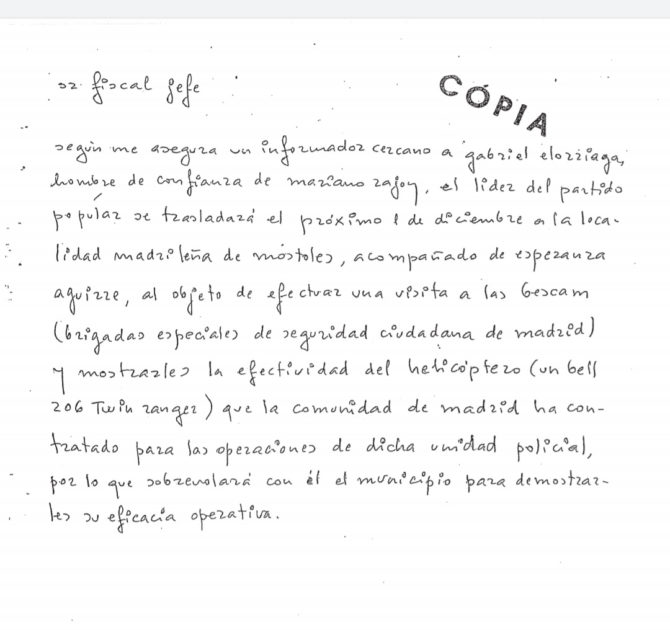 sr. fiscal jefe
CÓPIA
según me asegura un informador cercano a gabriel elorriaga,
hombre de confianza de mariano rajoy, el líder del partido
popular se trasladará el próximo 1 de diciembre a la loca-
lidad madrileña de móstoles, acompañado de esperanza
aguirre, al objeto de efectuar una visita a las bescam
(brigadas especiales de seguridad ciudadana de madrid)
y mostrarles la efectividad del helicóptero (un bell
206 Twin ranger) que la comunidad de madrid ha con-
tratado para las operaciones de dicha unidad policial,
por lo que sobrevolará con él el municipio para demostrar-
les su eficacia operativa.